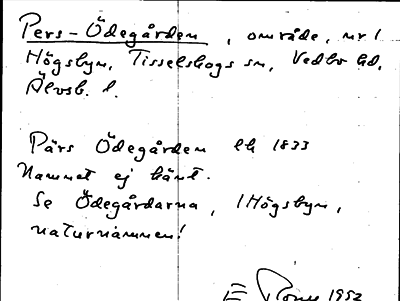 Pers-Ödegården, område, nr 1
Högsbyn, Tisselskogs sn, Vedbo hd,
Älvsb. l.
Pärs Ödegården lk 1833
Namnet ej känt.
Se Ödegårdarna, 1 Högsbyn,
naturnamnen!
E 1952